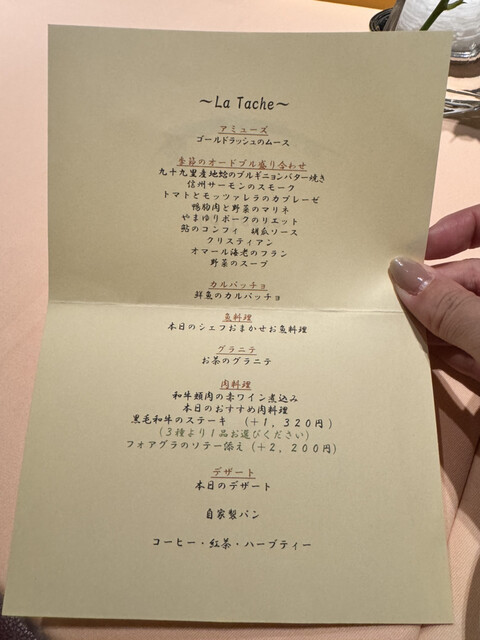 ～La Tache～
アミューズ
ゴールドラッシュのムース
季節のオードブル盛り合わせ
九十九里産地蛤のブルギニョンバター焼き
信州サーモンのスモーク
トマトとモッツァレラのカプレーゼ
鴨胸肉と野菜のマリネ
やまゆりポークのリエット
鮎のコンフィ　胡瓜ソース
クリスティアン
オマール海老のフラン
野菜のスープ
カルパッチョ
鮮魚のカルパッチョ
魚料理
本日のシェフおまかせお魚料理
グラニテ
お茶のグラニテ
肉料理
和牛頬肉の赤ワイン煮込み
本日のおすすめ肉料理
黒毛和牛のステーキ　（＋１，３２０円）
（３種より１品お選びください）
フォアグラのソテー添え（＋２，２００円）
デザート
本日のデザート
自家製パン
コーヒー・紅茶・ハーブティー